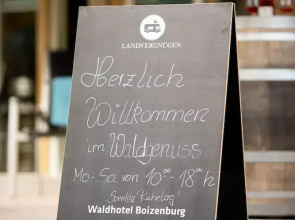 LANDVERGNÜGEN
Herzlich
Willkommen
im Waldgenuss
Mo-Sa von 10°° - 18°° h
Sonntag Ruhetag!
Waldhotel Boizenburg